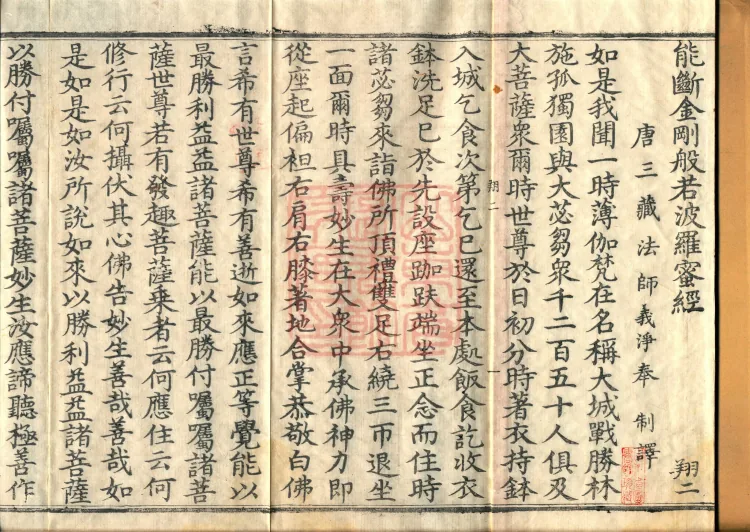 能斷金剛般若波羅蜜經 翔二
唐三藏法師義淨奉 制譯
如是我聞一時薄伽梵在名稱大城戰勝林
施孤獨園與大苾芻眾千二百五十人俱及
大菩薩眾爾時世尊於日初分時著衣持鉢
入城乞食次第乞已還至本處飯食訖收衣
翔二 一
鉢洗足已於先設座跏趺端坐正念而住時
諸苾芻來詣佛所頂禮雙足右繞三帀退坐
一面爾時具壽妙生在大眾中承佛神力即
從座起偏袒右肩右膝著地合掌恭敬白佛
言希有世尊希有善逝如來應正等覺能以
最勝利益益諸菩薩能以最勝付囑囑諸菩
薩世尊若有發趣菩薩乘者云何應住云何
修行云何攝伏其心佛告妙生善哉善哉如
是如是如汝所說如來以勝利益益諸菩薩
以勝付囑囑諸菩薩妙生汝應諦聽極善作